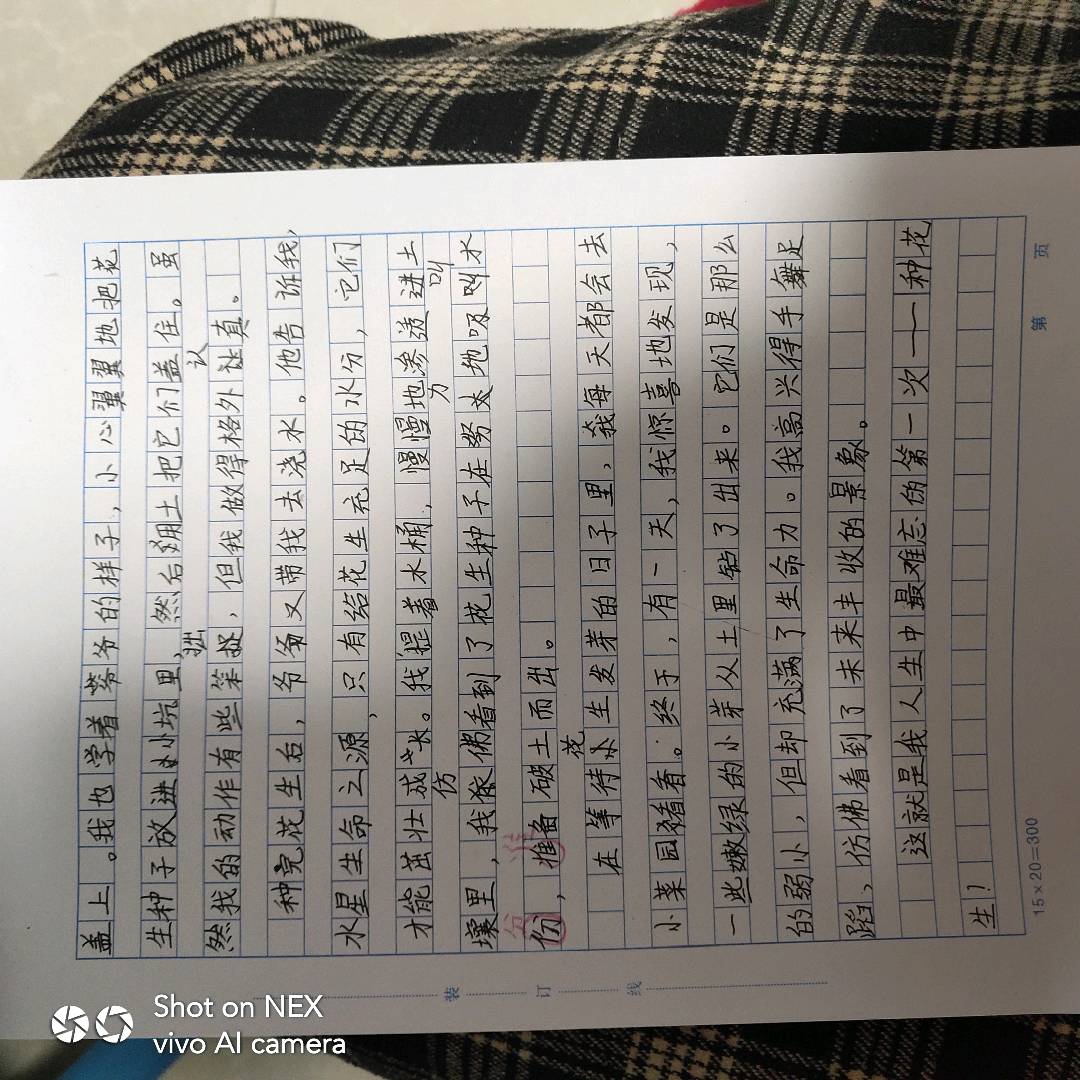 盖上。我也学着爷爷的样子，小心翼翼地把花
生种子放进小坑里，然后用土把它们盖住。虽
然我的动作有些笨拙，但我做得格外认真。
种完花生后，爷爷又带我去浇水。他告诉我，
水是生命之源，只有给花生充足的水分，它们
才能茁壮成长。我提着水桶，慢慢地渗透进土
壤里，我仿佛看到了花生种子在努力地吸叫水
份，准备破土而出。
在等待花生发芽的日子里，我每天都会去
小菜园看看。终于，有一天，我惊喜地发现，
一些嫩绿的小芽从土里钻了出来。它们是那么
的弱小，但却充满了生命力。我高兴得手舞足
蹈，仿佛看到了未来丰收的景象。
这就是我人生中最难忘的第一次——种花
生！
15×20=300
第 页
装 订 线
Shot on NEX
vivo AI camera